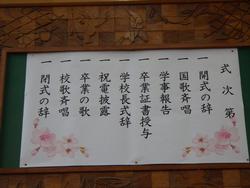 式次第
一 開式の辞
一 国歌斉唱
一 学事報告
一 卒業証書授与
一 学校長式辞
一 祝電披露
一 卒業の歌
一 校歌斉唱
一 閉式の辞